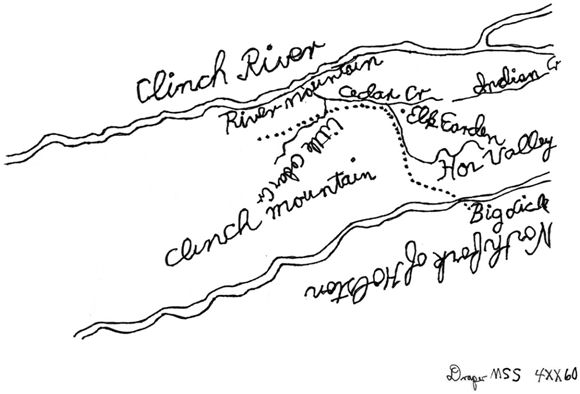 Clinch River
River mountain
Cedar Cr
Indian Cr
Elk Earden
Little Cedar Cr
Hor Valley
Clinch Mountain
Big Lick
North fork of Holston
Draper MSS 4XX60